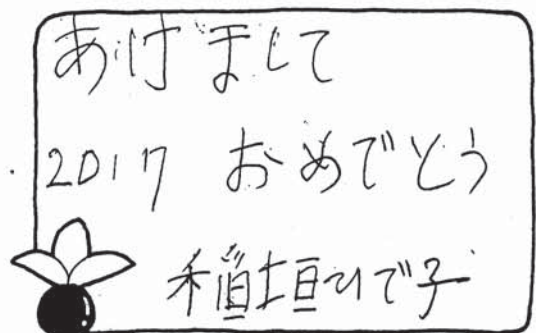 あけまして
2017 おめでとう
稲垣ひで子